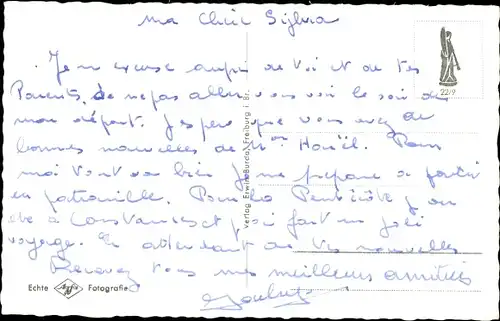 Ma Chère Sylvia
Je m'excuse auprès de toi et de tes
Parents, de ne pas aller vous voir le soir de
mon départ. J'espère que vous avez de
bonnes nouvelles de Mr Pour
moi tout va bien. Je me prépare a partir
en patrouille. Pour la Pentecôte j'ai
été à Constance et j'ai fait un joli
voyage. En attendant de vos nouvelles
Recevez tous mes meilleurs amitiés
22/9
Verlag Erwin Burda, Freiburg i. Br.
Echte Agfa Fotografie